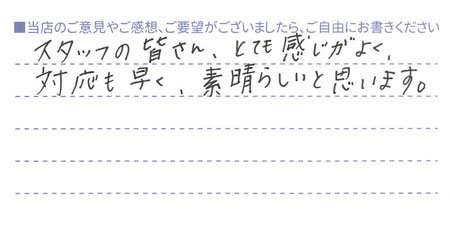 ■当店のご意見やご感想、ご要望がございましたら、ご自由にお書きください
スタッフの皆さん、とても感じがよく、
対応も早く、素晴らしいと思います。